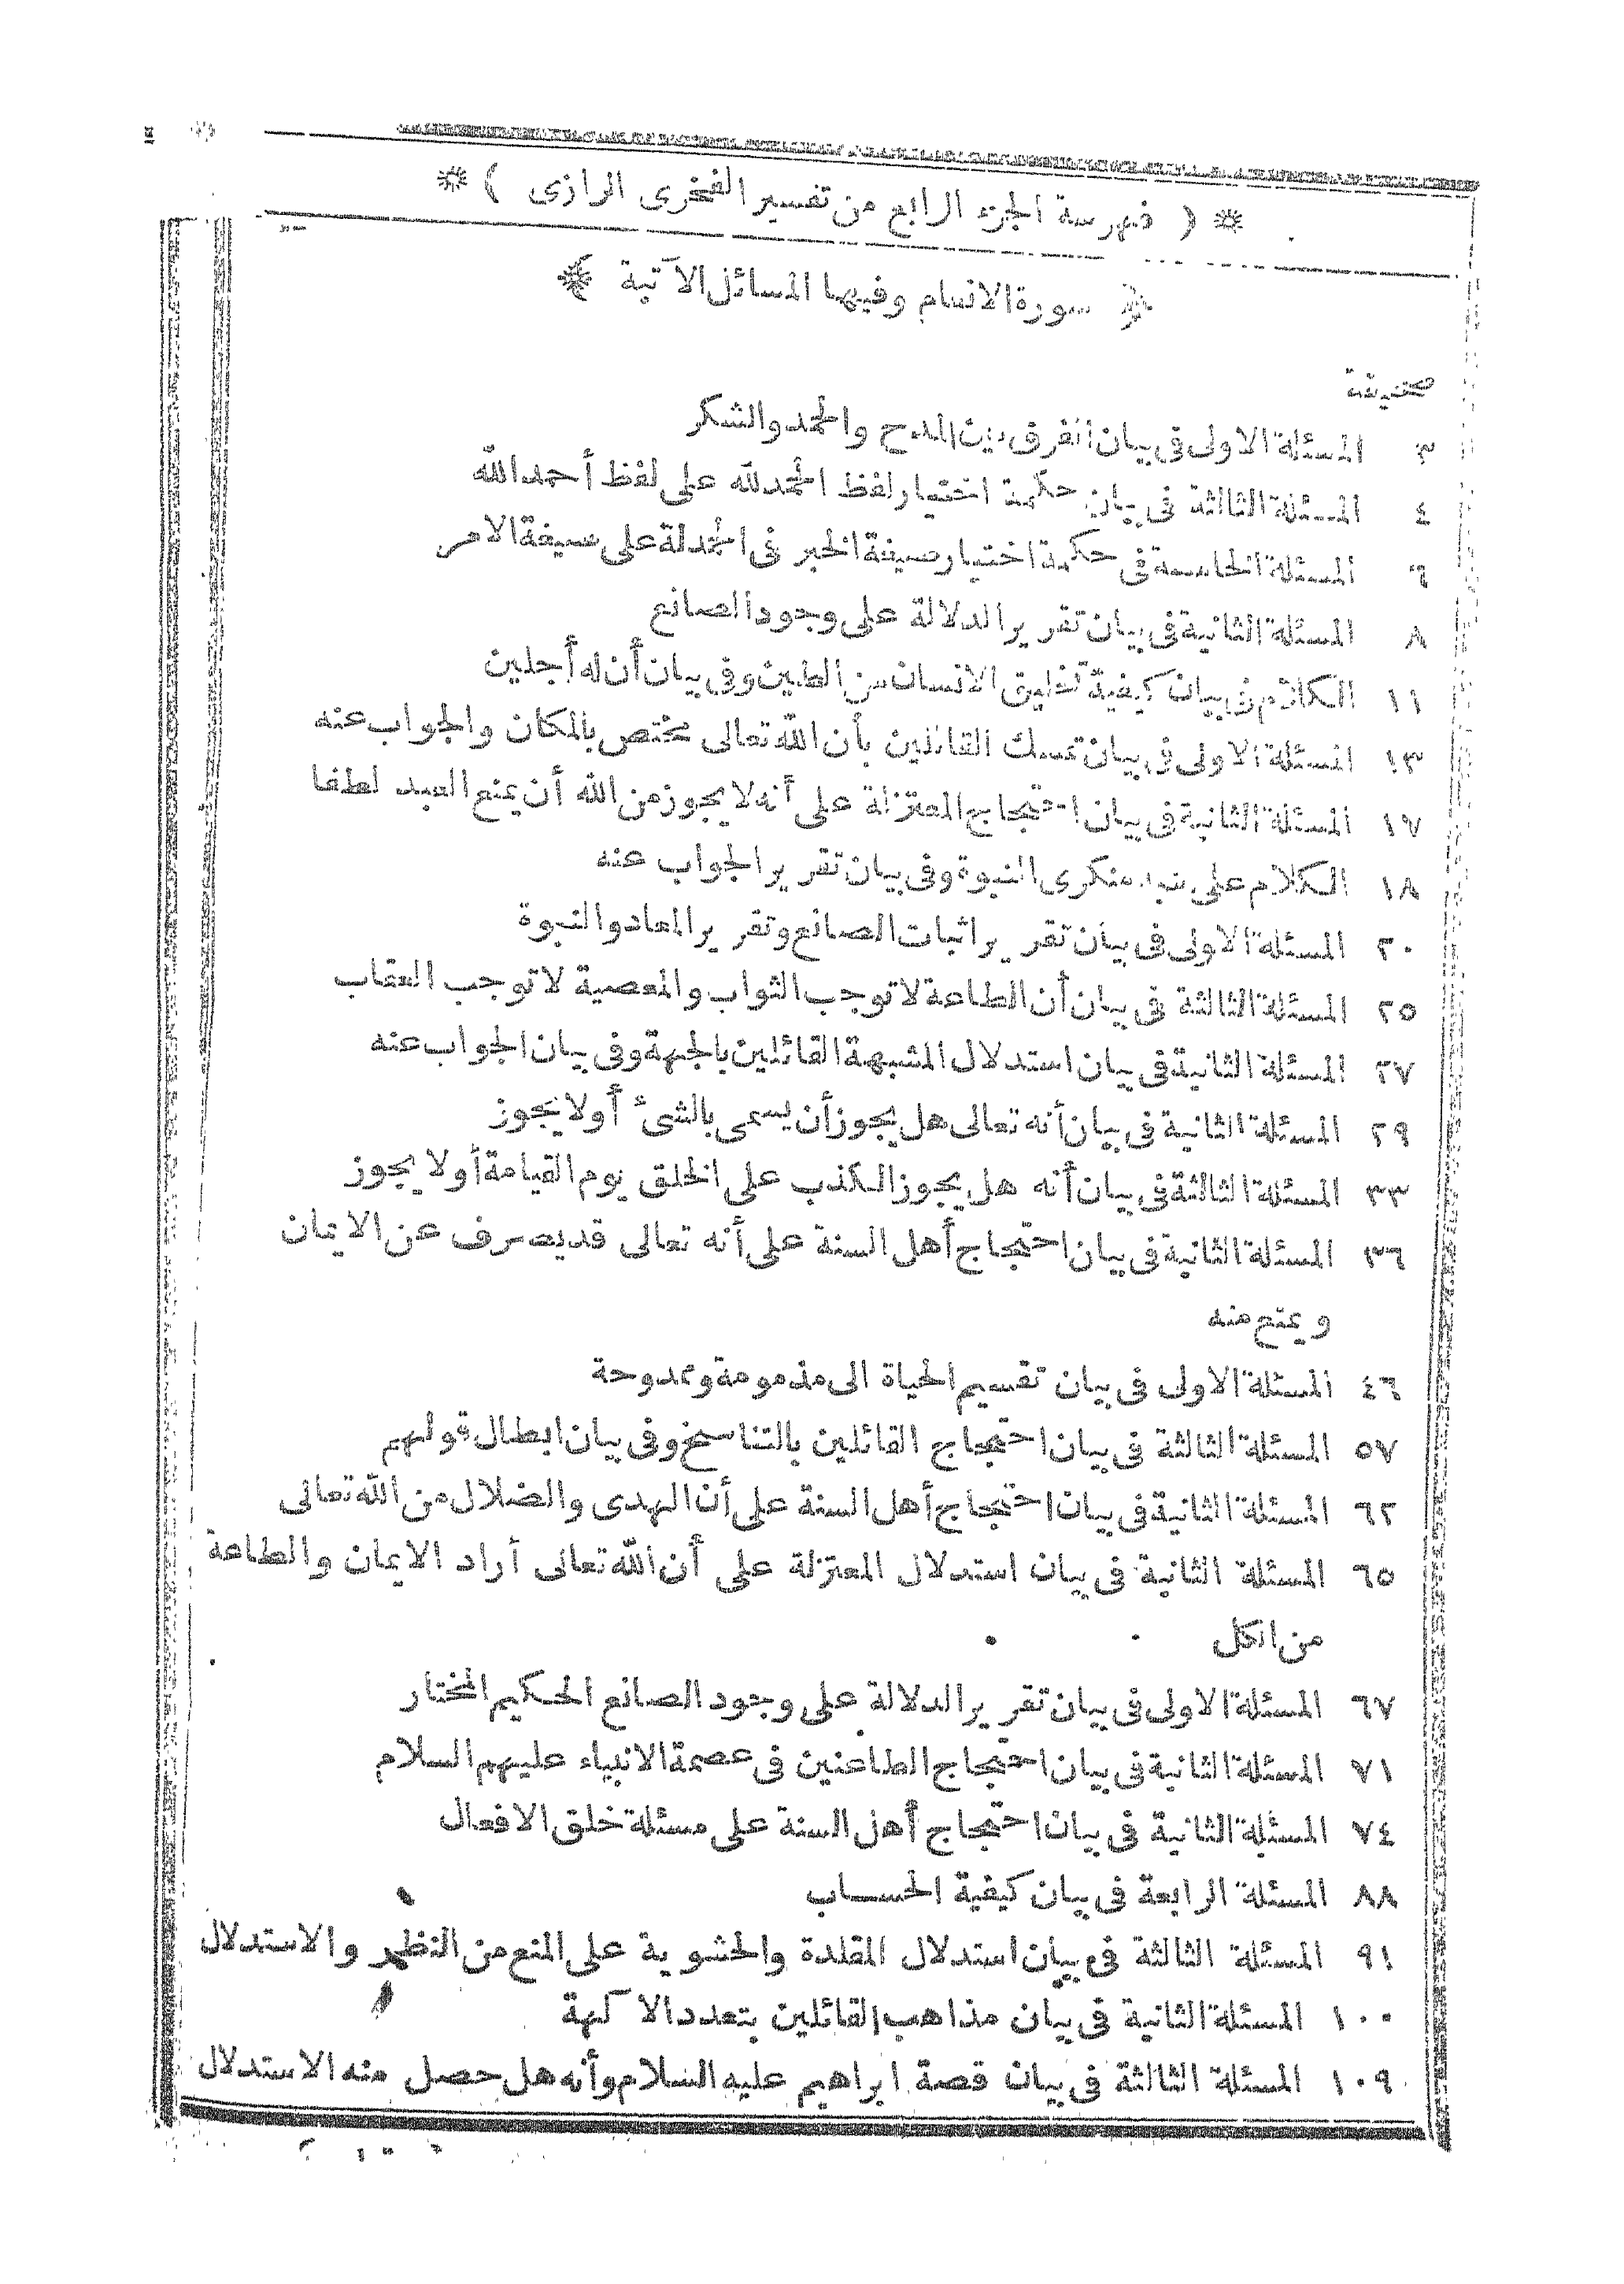 ﴿ فهرسة الجزء الرابع من تفسير الفخرى الرازى ﴾
﴿ سورة الانعام وفيها المسائل الآتية ﴾
صحيفة
٣ المسئلة الاولى فى بيان الفرق بين المدح والحمد والشكر
٤ المسئلة الثالثة فى بيان حكمة اختيار لفظ الحمد لله على لفظ أحمد الله
٦ المسئلة الخامسة فى حكمة اختيار صيغة الخبر فى الحمدلة على صيغة الامر
٨ المسئلة الثانية فى بيان تقرير الدلالة على وجود الصانع
١١ الكلام فى بيان كيفية تخليق الانسان من الطين وفى بيان أن له أجلين
١٣ المسئلة الاولى فى بيان تمسك القائلين بأن الله تعالى مختص بالمكان والجواب عنه
١٧ المسئلة الثانية فى بيان احتجاج المعتزلة على أنه لا يجوز من الله أن يمنع العبد لطفا
١٨ الكلام على شبه منكرى النبوة وفى بيان تقرير الجواب عنه
٢٠ المسئلة الاولى فى بيان تقرير اثبات الصانع وتقرير المعاد والنبوة
٢٥ المسئلة الثالثة فى بيان أن الطاعة لا توجب الثواب والمعصية لا توجب العقاب
٢٧ المسئلة الثانية فى بيان استدلال المشبهة القائلين بالجهة وفى بيان الجواب عنه
٢٩ المسئلة الثانية فى بيان أنه تعالى هل يجوز أن يسمى بالشئ أولا يجوز
٣٣ المسئلة الثالثة فى بيان أنه هل يجوز الكذب على الخلق يوم القيامة أولا يجوز
٣٦ المسئلة الثانية فى بيان احتجاج أهل السنة على أنه تعالى قد يصرف عن الايمان
ويمنع منه
٤٦ المسئلة الاولى فى بيان تقسيم الحياة الى مذمومة وممدوحة
٥٧ المسئلة الثالثة فى بيان احتجاج القائلين بالتناسخ وفى بيان ابطال قولهم
٦٢ المسئلة الثانية فى بيان احتجاج أهل السنة على أن الهدى والضلال من الله تعالى
٦٥ المسئلة الثانية فى بيان استدلال المعتزلة على أن الله تعالى أراد الايمان والطاعة
من الكل
٦٧ المسئلة الاولى فى بيان تقرير الدلالة على وجود الصانع الحكيم المختار
٧١ المسئلة الثانية فى بيان احتجاج الطاعنين فى عصمة الانبياء عليهم السلام
٧٤ المسئلة الثانية فى بيان احتجاج أهل السنة على مسئلة خلق الافعال
٨٨ المسئلة الرابعة فى بيان كيفية الحساب
٩١ المسئلة الثالثة فى بيان استدلال المقلدة والحشوية على المنع من النظر والاستدلال
١٠٠ المسئلة الثانية فى بيان مذاهب القائلين بتعدد الآلهة
١٠٩ المسئلة الثالثة فى بيان قصة ابراهيم عليه السلام وأنه هل حصل منه الاستدلال